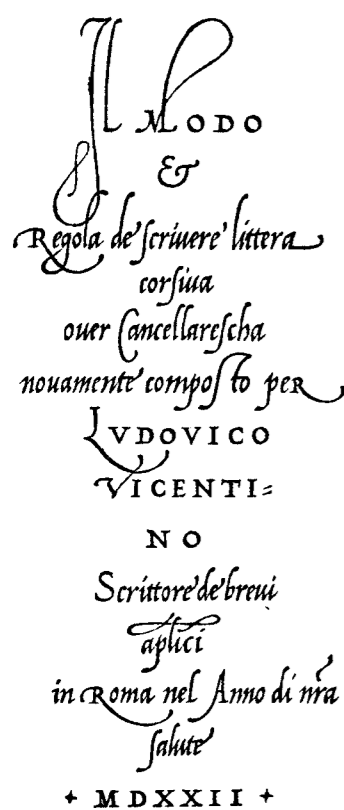 Il MODO
&
Regola de ſcriuere littera
corſiua
ouer Cancellareſcha
nouamente compoſto per
LVDOVICO
VICENTI=
NO
Scrittore de breui
aplici
in Roma nel Anno di nr̃a
ſalute
+ MDXXII +